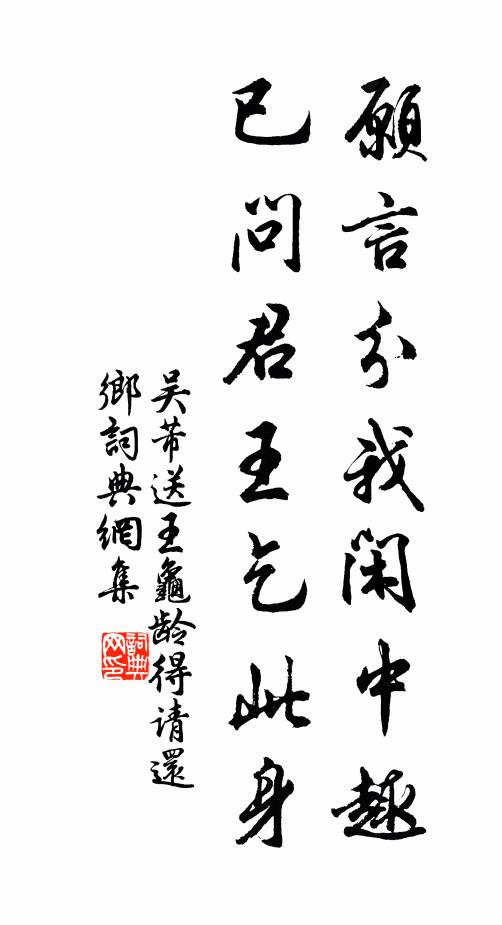 願言分我閑中趣
已問君王乞此身
吴芾送王龜龄得请還
鄉詞典網集
詞典网印